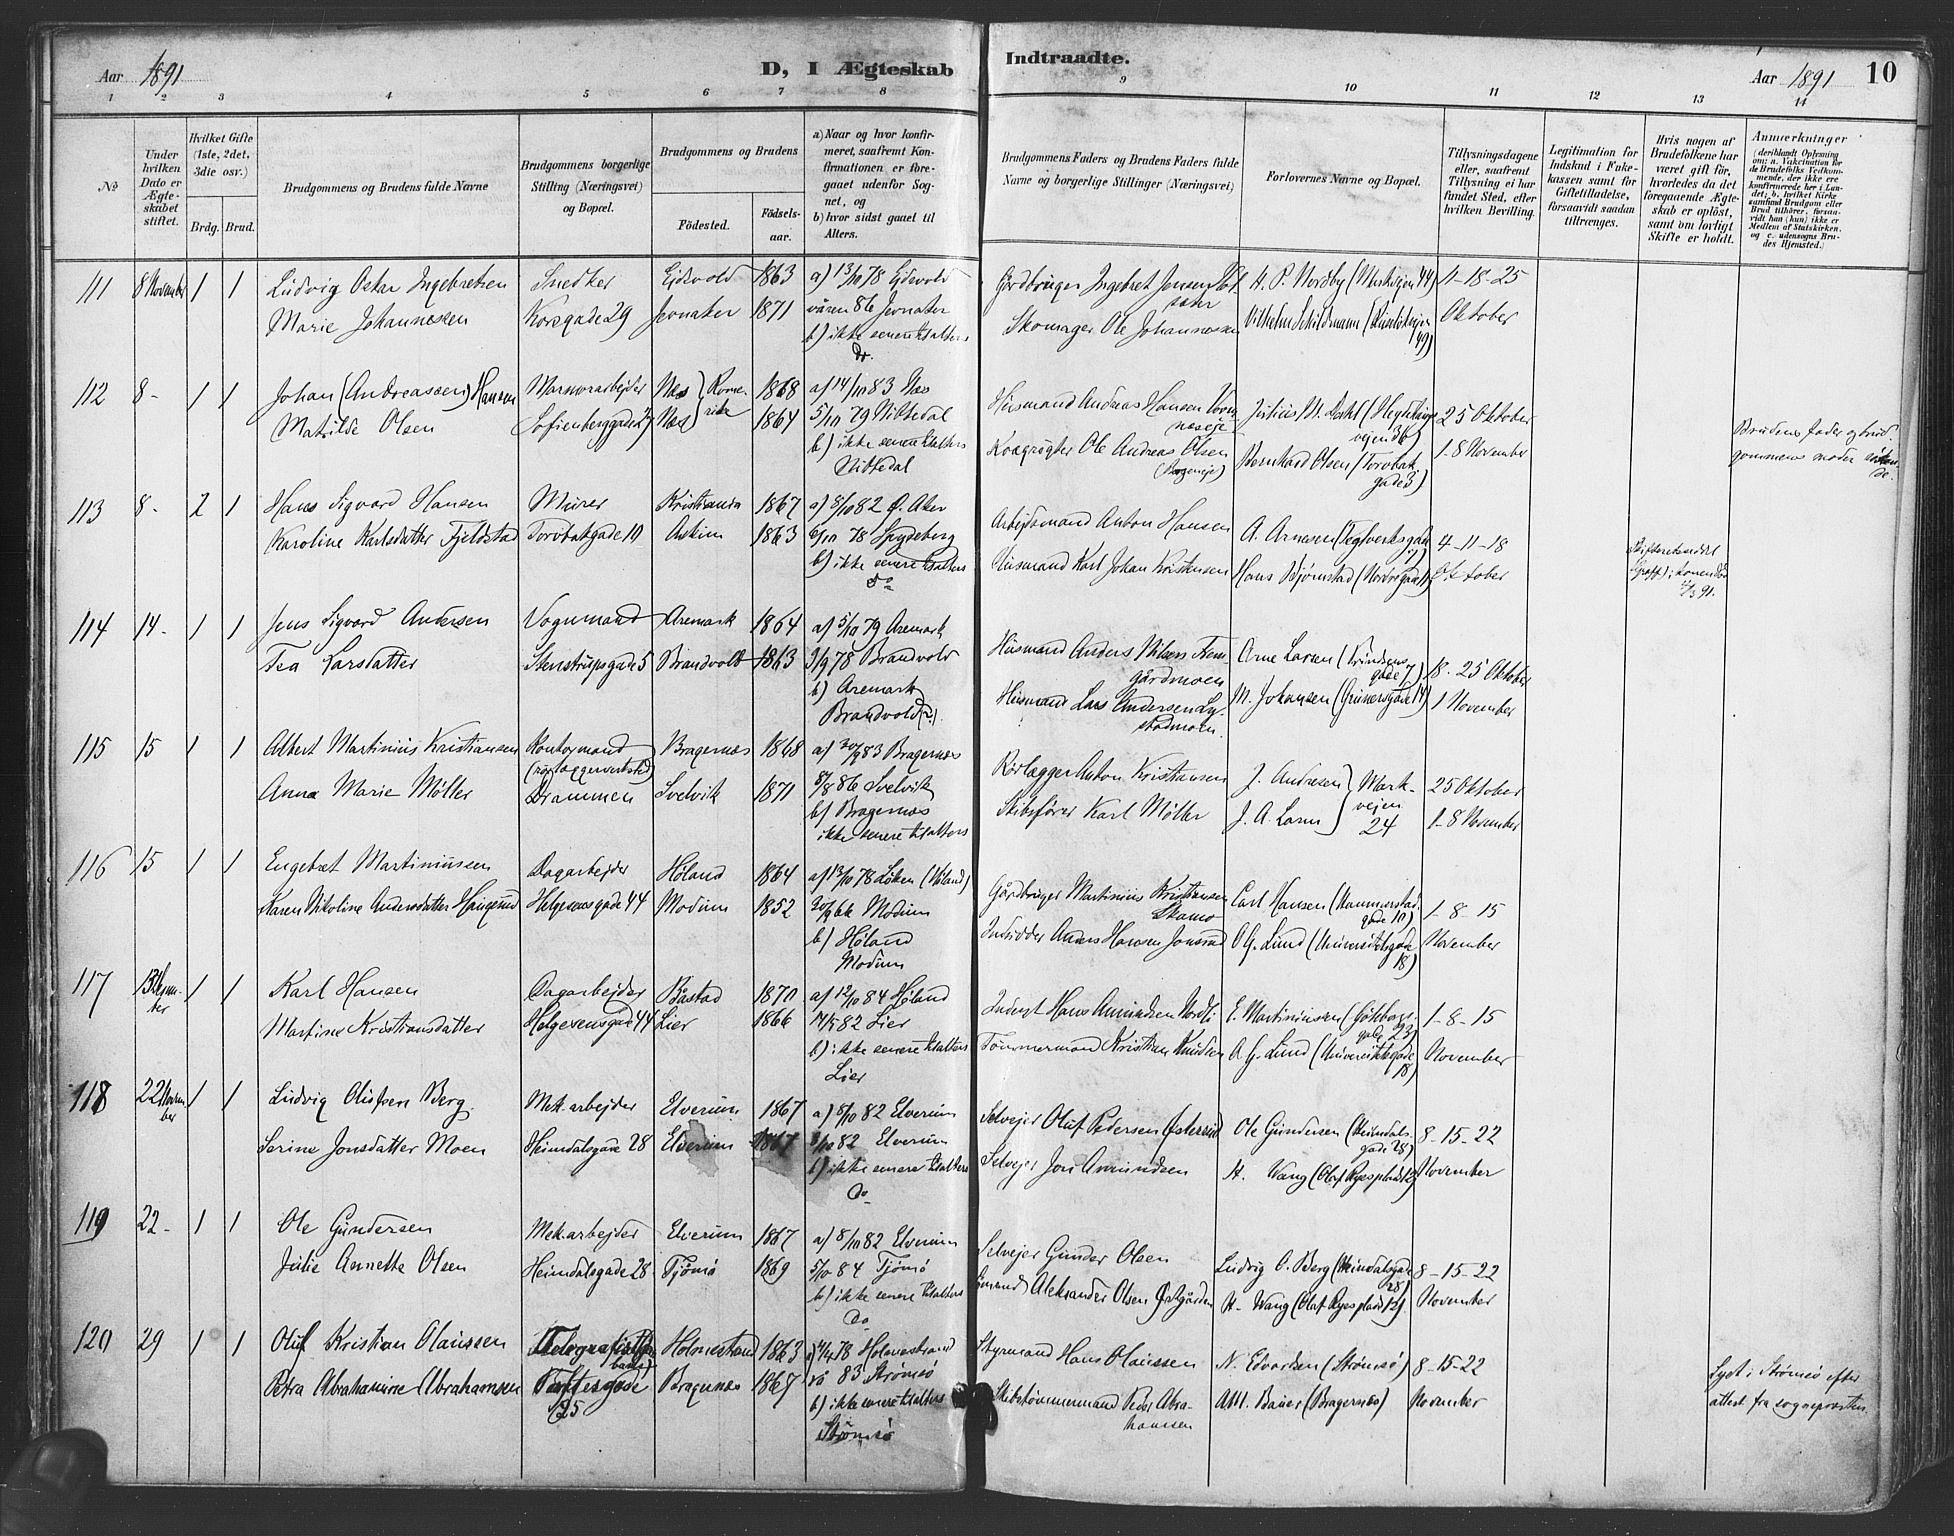 Aar 1891
D, I Ægteskab Indtraadte.
Aar 1891 10
1 2 3 4 5 6 7 8 9 10 11 12 13 14
№
Under hvilken Dato er Ægteskabet stiftet.
Hvilket Gifte (1ste, 2det, 3die osv.)
Brdg. Brud.
Brudgommens og Brudens fulde Navne
Brudgommens borgerlige Stilling (Næringsvei) og Bopæl.
Brudgommens og Brudens
Fødested.
Fødselsaar.
a) Naar og hvor konfirmeret, saafremt Konfirmationen er foregaaet udenfor Sognet, og
b) hvor sidst gaaet til Alters.
Brudgommens Faders og Brudens Faders fulde Navne og borgerlige Stillinger (Næringsvei)
Forlovernes Navne og Bopæl.
Tillysningsdagene eller, saafremt Tillysning ei har fundet Sted, efter hvilken Bevilling.
Legitimation for Indskud i Fukekassen samt for Giftetilladelse, forsaavidt saadan tiltrænges.
Hvis nogen af Brudefolkene har været gift før, hvorledes da det foregaaende Ægteskab er opløst, samt om lovligt Skifte er holdt.
Anmærkninger
(deriblandt Oplysning om: a. Vakcination for de Brudefolks Vedkommende, der ikke ere konfirmerede her i Landet; b. hvilket Kirkesamfund Brudgom eller Brud tilhører, forsaavidt han (hun) ikke er Medlem af Statskirken, og c. udensogns Brudes Hjemsted.)
111 8 November 1 1 Ludvig Oskar Ingebretsen Snedker Eidsvold 1863 a) 13/10 78 Eidsvold Gårdbruger Ingebret Jensen H. P. Nordby (Markvejen 44) 11-18-25
Marie Johannessen Korsgade 29 Jevnaker 1871 våren 86 Jevnaker Skomager Ole Johannessen Vilhelm Schildmann Oktober
b) ikke senere til alters
do.
112 8 - 1 1 Johan (Andreassen) Hansen Marmorarbejder Næs Romerike 1868 a) 14/10 83 Næs Husmand Andreas Hansen Julius M. Dahl (Hegdehaugsvejen 36) 25 Oktober
Matilde Olsen Sofienberggade 29 Næs 1864 5/10 79 Nittedal Ole Andreas Olsen Bernhard Olsen (Torvbakgade 3) 1-8 November Brudens fader og brudgommens moder
b) ikke senere til alters
Nittedal
113 8 - 2 1 Hans Sigvard Hansen Murer Kristiania 1867 a) 8/10 82 Ø. Aker Arbejdsmand Anton Hansen A. Arnesen (Teglverksgade 4-11-18
Karoline Karlsdatter Fjeldstad Torvbakgade 19 Askim 1863 6/10 78 Spydeberg Husmand Karl Johan Kristensen Hans Bjørnstad (Nordregade Oktober
b) ikke senere til alters
do
114 14 - 1 1 Jens Sigvard Andersen Vognmand Aremark 1864 a) 5/10 79 Aremark Husmand Anders Nilsen Arne Larsen 18-25 Oktober
Tea Larsdatter Stenstrupsgade 5 Brandvold 1863 3/9 78 Brandvold Husmand Lars Andersen M. Johansen (Grünersgade 14) 1 November
b) Aremark
Brandvold (?).
115 15 1 1 Albert Martinius Kristiansen Kontormand Bragernæs 1868 a) 30/9 83 Bragernæs Rørlægger Anton Kristiansen J. Andresen Markvejen 24 25 Oktober
(rørlæggerverksted)
Anna Marie Møller Drammen Svelvik 1871 8/8 86 Svelvik Skibsfører Karl Møller J. A. Larsen 1-8 November
b) Bragernæs
ikke senere til alters
116 15 1 1 Engebret Martiniussen Dagarbejder Høland 1864 a) 13/10 78 Løken (Høland) Gårdbruger Martinius Kristiansen Carl Hansen (Hammerstadgade 10) 1-8-15
Karen Nikoline Andersdatter Haugsund Helgesensgade 44 Modum 1852 30/9 66 Modum Anders Hansen Jonsrud O. G. Lund (Universitetsgade 18) November
b) Høland
Modum
117 15 November 1 1 Karl Hansen Dagarbejder Båstad 1870 a) 12/10 84 Høland Inderst Hans Amundsen Nordli E. Martiniussen (Göteborggade 23) 1-8-15
Martine Kristiansdatter Helgesensgade 44 Lier 1866 14/5 82 Lier Tømmermand Kristian Knudsen O. G. Lund (Universitetsgade 18) November
b) ikke senere til alters
Lier
118 22 November 1 1 Ludvig Olufsen Berg Mek. arbejder Elverum 1867 a) 8/10 82 Elverum Selvejer Oluf Pedersen Ole Gundersen (Heimdalsgade 28) 8-15-22
Serine Jonsdatter Moen Heimdalsgade 28 Elverum 1867 8/10 82 Elverum Selvejer Jon Amundsen H. Wang (Olaf Ryesplads 12) November
b) ikke senere til alters
do
119 22 - 1 1 Ole Gundersen Mek. arbejder Elverum 1867 a) 8/10 82 Elverum Selvejer Gunder Olsen Ludvig O. Berg (Heimdalsgade 28) 8-15-22
Julie Annette Olsen Heimdalsgade 28 Tjømø 1869 5/10 84 Tjømø Sømand Aleksander Olsen Østgården H. Wang (Olaf Ryesplads 12). November
b) ikke senere til alters
do
120 29 1 1 Oluf Kristian Olaussen Telegrafist Holmestrand 1863 78 Holmestrand Styrmand Hans Olaussen N. Edvardsen (Strømsø) 8-15-22 Lyst i Strømsø efter
Petra Abrahamine Abrahamsen Toftesgade 25 Bragernæs 1867 83 Strømsø Skibstømmermand Peder Abrahamsen A. M. Bauer (Bragernæs) November attest fra sognepresten.
b) ikke senere til alters
Strømsø